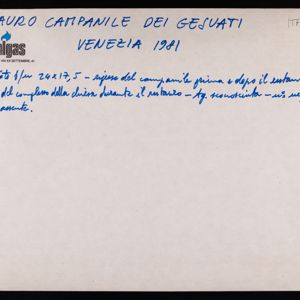 AURO CAMPANILE DEI GESUATI
VENEZIA 1981
lgas
VIA XX SETTEMBRE, 41
foto b/n 24x17,5 - riprese del campanile prima e dopo il restauro
del complesso della chiesa durante il restauro - Ag. sconosciuta -
assente.